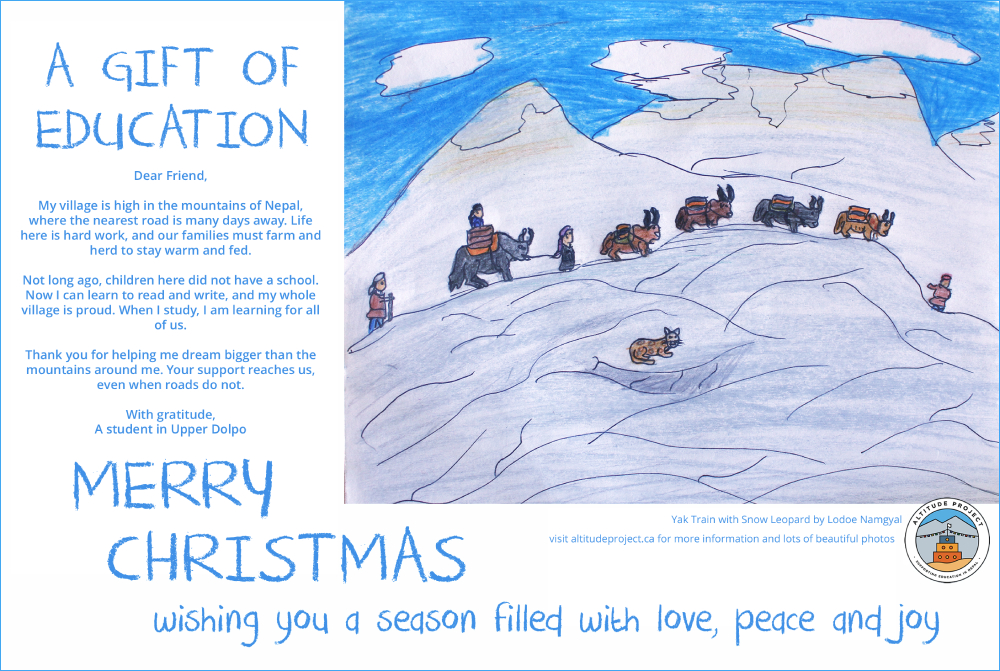 A GIFT OF
EDUCATION
Dear Friend,
My village is high in the mountains of Nepal,
where the nearest road is many days away. Life
here is hard work, and our families must farm and
herd to stay warm and fed.
Not long ago, children here did not have a school.
Now I can learn to read and write, and my whole
village is proud. When I study, I am learning for all
of us.
Thank you for helping me dream bigger than the
mountains around me. Your support reaches us,
even when roads do not.
With gratitude,
A student in Upper Dolpo
MERRY
CHRISTMAS
wishing you a season filled with love, peace and joy
Yak Train with Snow Leopard by Lodoe Namgyal
visit altitudeproject.ca for more information and lots of beautiful photos
ALTITUDE PROJECT
SUPPORTING EDUCATION IN NEPAL